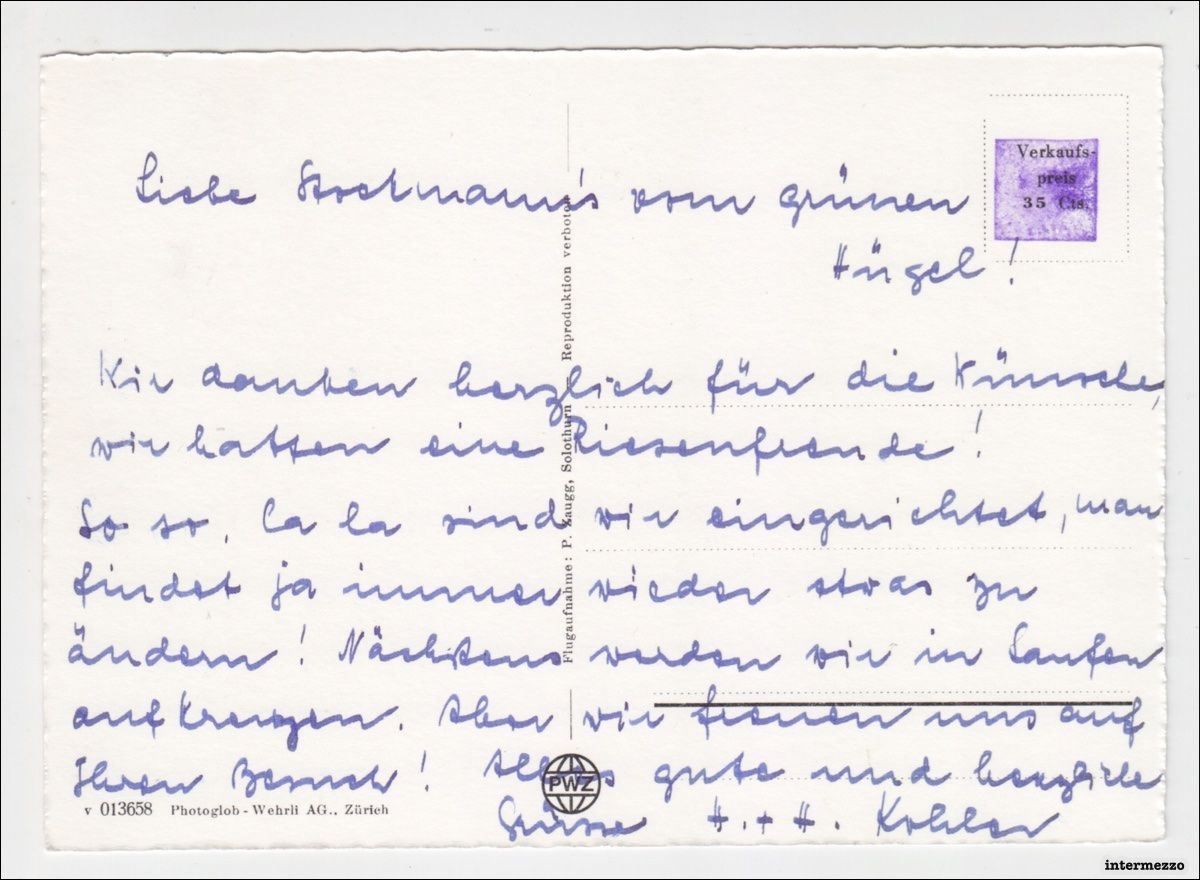 Verkaufs-
preis
35 Cts.
Liebe Stockmann's vom grünen
Hügel!
Wir danken herzlich für die Wünsche,
wir hatten eine Riesenfreude!
So so, la la sind wir eingerichtet, man
findet ja immer wieder etwas zu
ändern! Nächstens werden wir in Laufen
aufkreuzen. Aber wir freuen uns auf
Ihren Besuch! Alles gute und herzliche
Grüsse H. + H. Kohler
Flugaufnahme: P. Zaugg, Solothurn Reproduktion verboten
PWZ
v 013658 Photoglob-Wehrli AG., Zürich
intermezzo